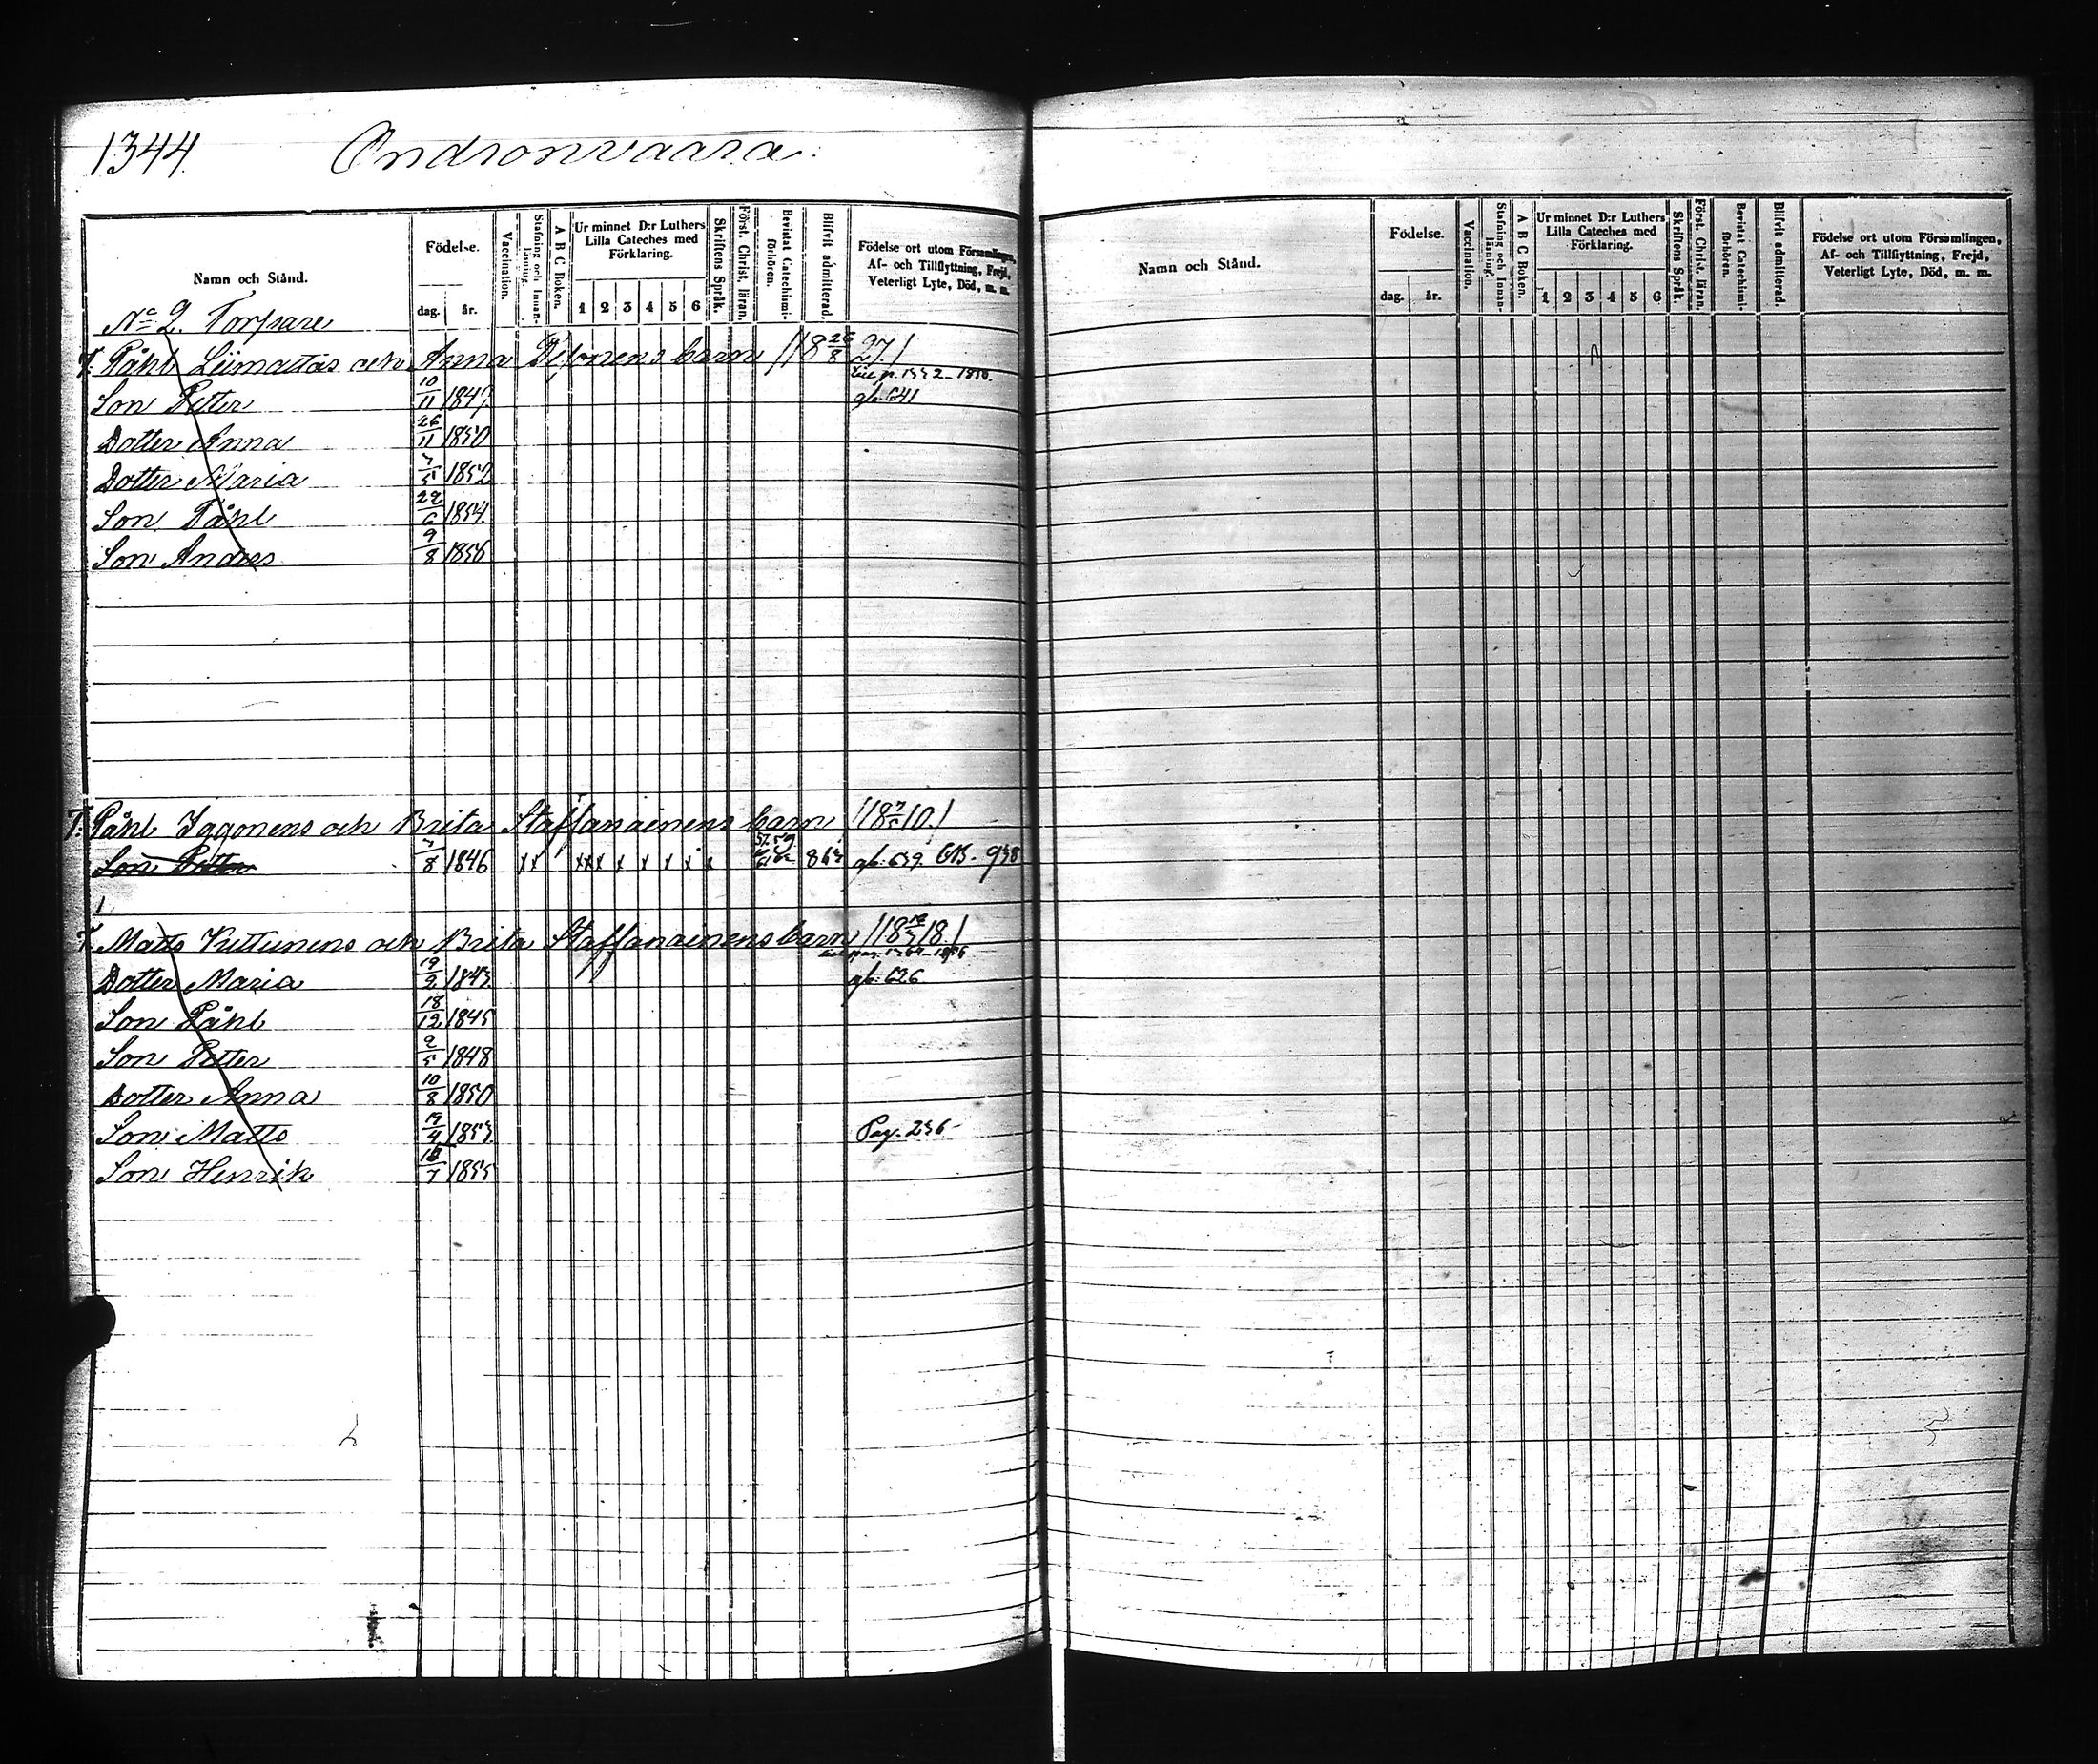 1344. Ondronvaara.
Namn och Stånd.
Födelse.
dag. år.
Vaccination.
Stafning och Innanläsning.
A B C Boken.
Ur minnet D:r Luthers Lilla Cateches med Förklaring.
1 2 3 4 5 6
Skriftens Språk.
Först. Christ. läran.
Bevistat Catechismiförhören.
Blifvit admitterad.
Födelse ort utom Församlingen, Af- och Tillflyttning, Frejd, Veterligt Lyte, Död, m. m.
No 2. Torpare
T. Påhl Liimattas och Anna barn /18 26/8 27./
Son Petter 10/11 1847. gb. 641
Dotter Anna 26/11 1850
Dotter Maria 7/5 1852
Son Påhl 22/6 1854.
Son Andres 9/8 1856
T. Påhl Iggonens och Brita Staffanainens barn /18 10./
Son Petter 8 1846 x x x x x x x x x x gb. 639. 938
1
T. Matts Kuttunens och Brita Staffanainens barn /18 18./
Dotter Maria 19/2 1843. gb. 626
Son Påhl 18/12 1845
Son Petter 2/5 1848
Dotter Anna 10/8 1850
Son Matts 4 1853. Pag. 236
Son Henrik 7 1855
Namn och Stånd.
Födelse.
dag. år.
Vaccination.
Stafning och Innanläsning.
A B C Boken.
Ur minnet D:r Luthers Lilla Cateches med Förklaring.
1 2 3 4 5 6
Skriftens Språk.
Först. Christ. läran.
Bevistat Catechismiförhören.
Blifvit admitterad.
Födelse ort utom Församlingen, Af- och Tillflyttning, Frejd, Veterligt Lyte, Död, m. m.